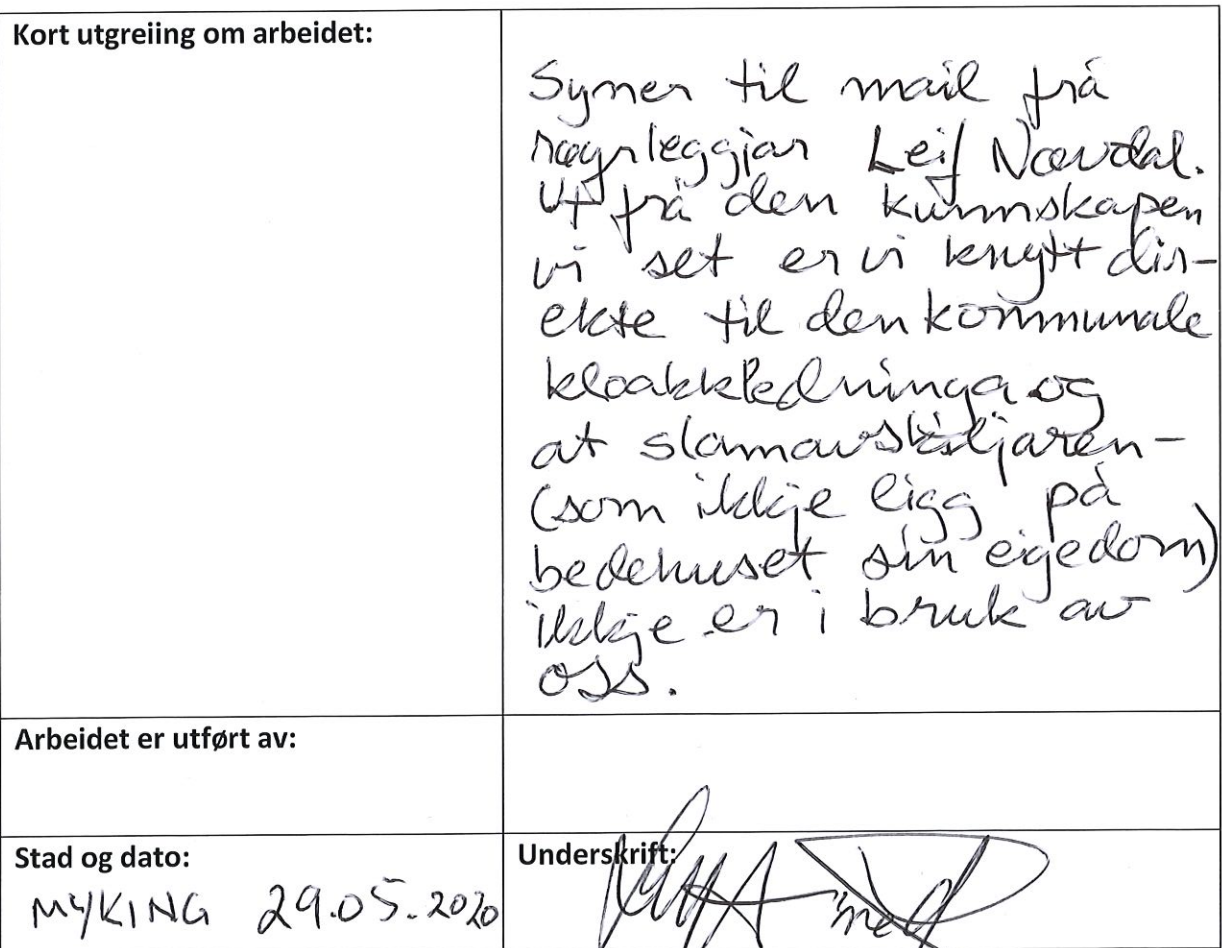 Kort utgreiing om arbeidet:
Syner til mail frå
røyrleggjar Leif Nævdal.
Ut frå den kunnskapen
vi set er vi knytt dir-
ekte til den kommunale
kloakkledninga og
at slamavskiljaren-
(som ikkje ligg på
bedehuset sin eigedom)
ikkje er i bruk av
oss.
Arbeidet er utført av:
Stad og dato:
MYKING 29.05.2020
Underskrift: